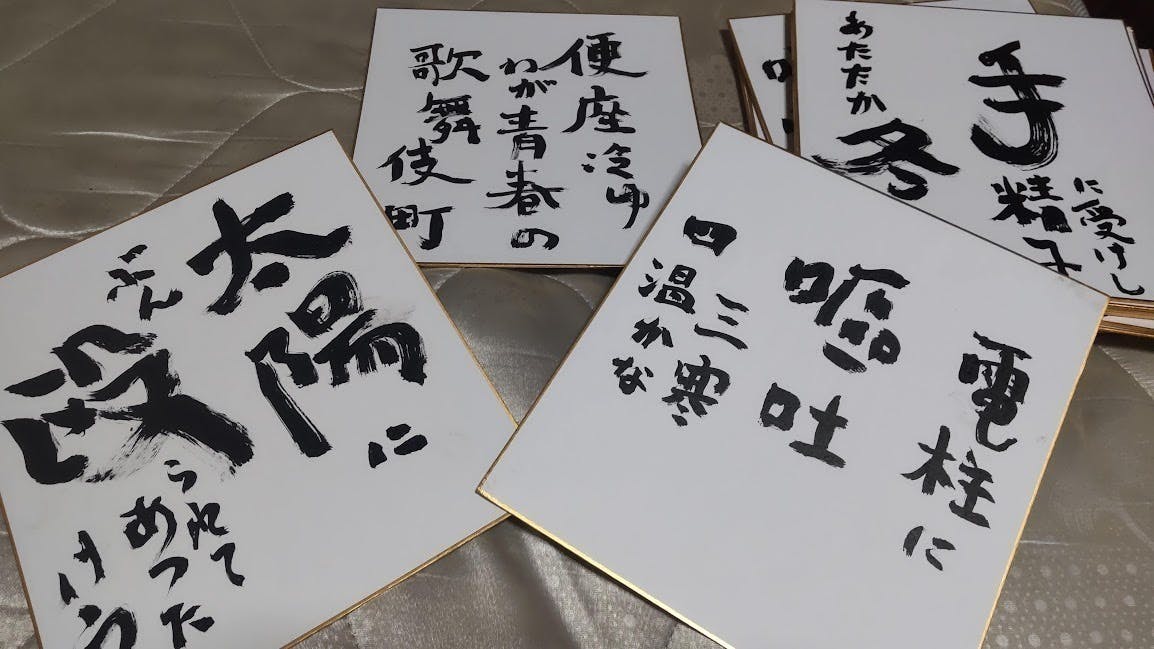 便座冷ゆ
わが青春の
歌舞伎町
手
に受けし
精子
あたたか
冬
太陽に
ぶん殴
られて
あつた
けえ
電柱に
嘔吐
三寒
四温かな